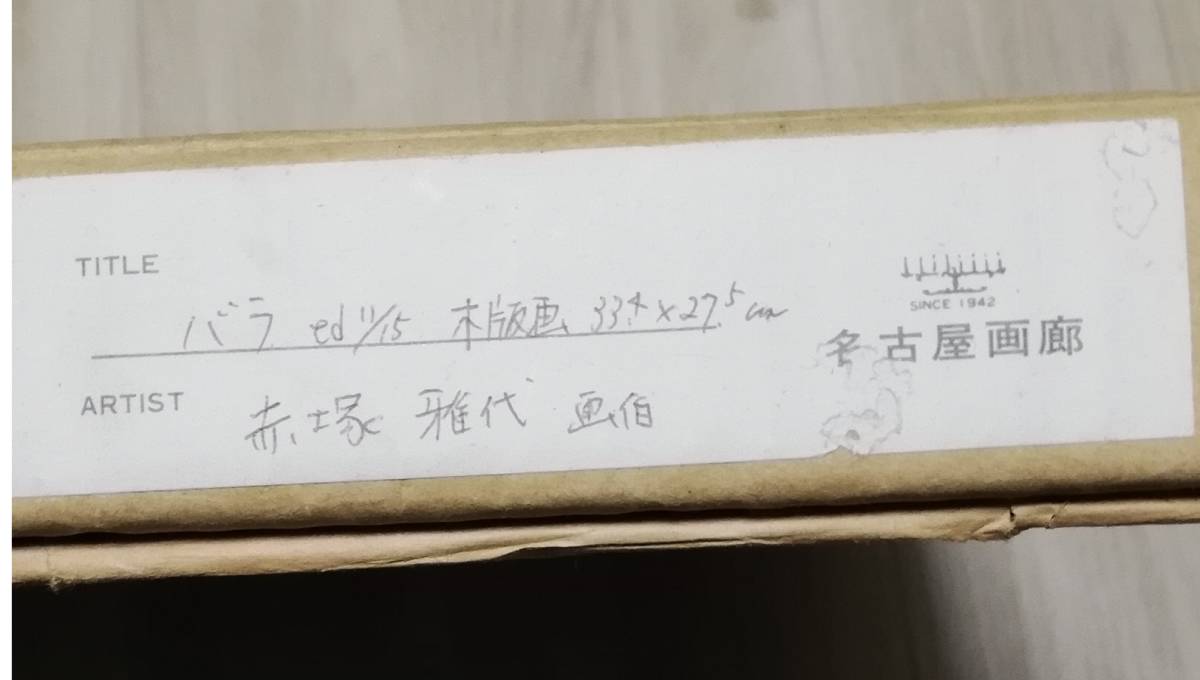 TITLE
バラ ed 11/15 木版画 33.4×27.5cm
SINCE 1942
名古屋画廊
ARTIST
赤塚 雅代 画伯